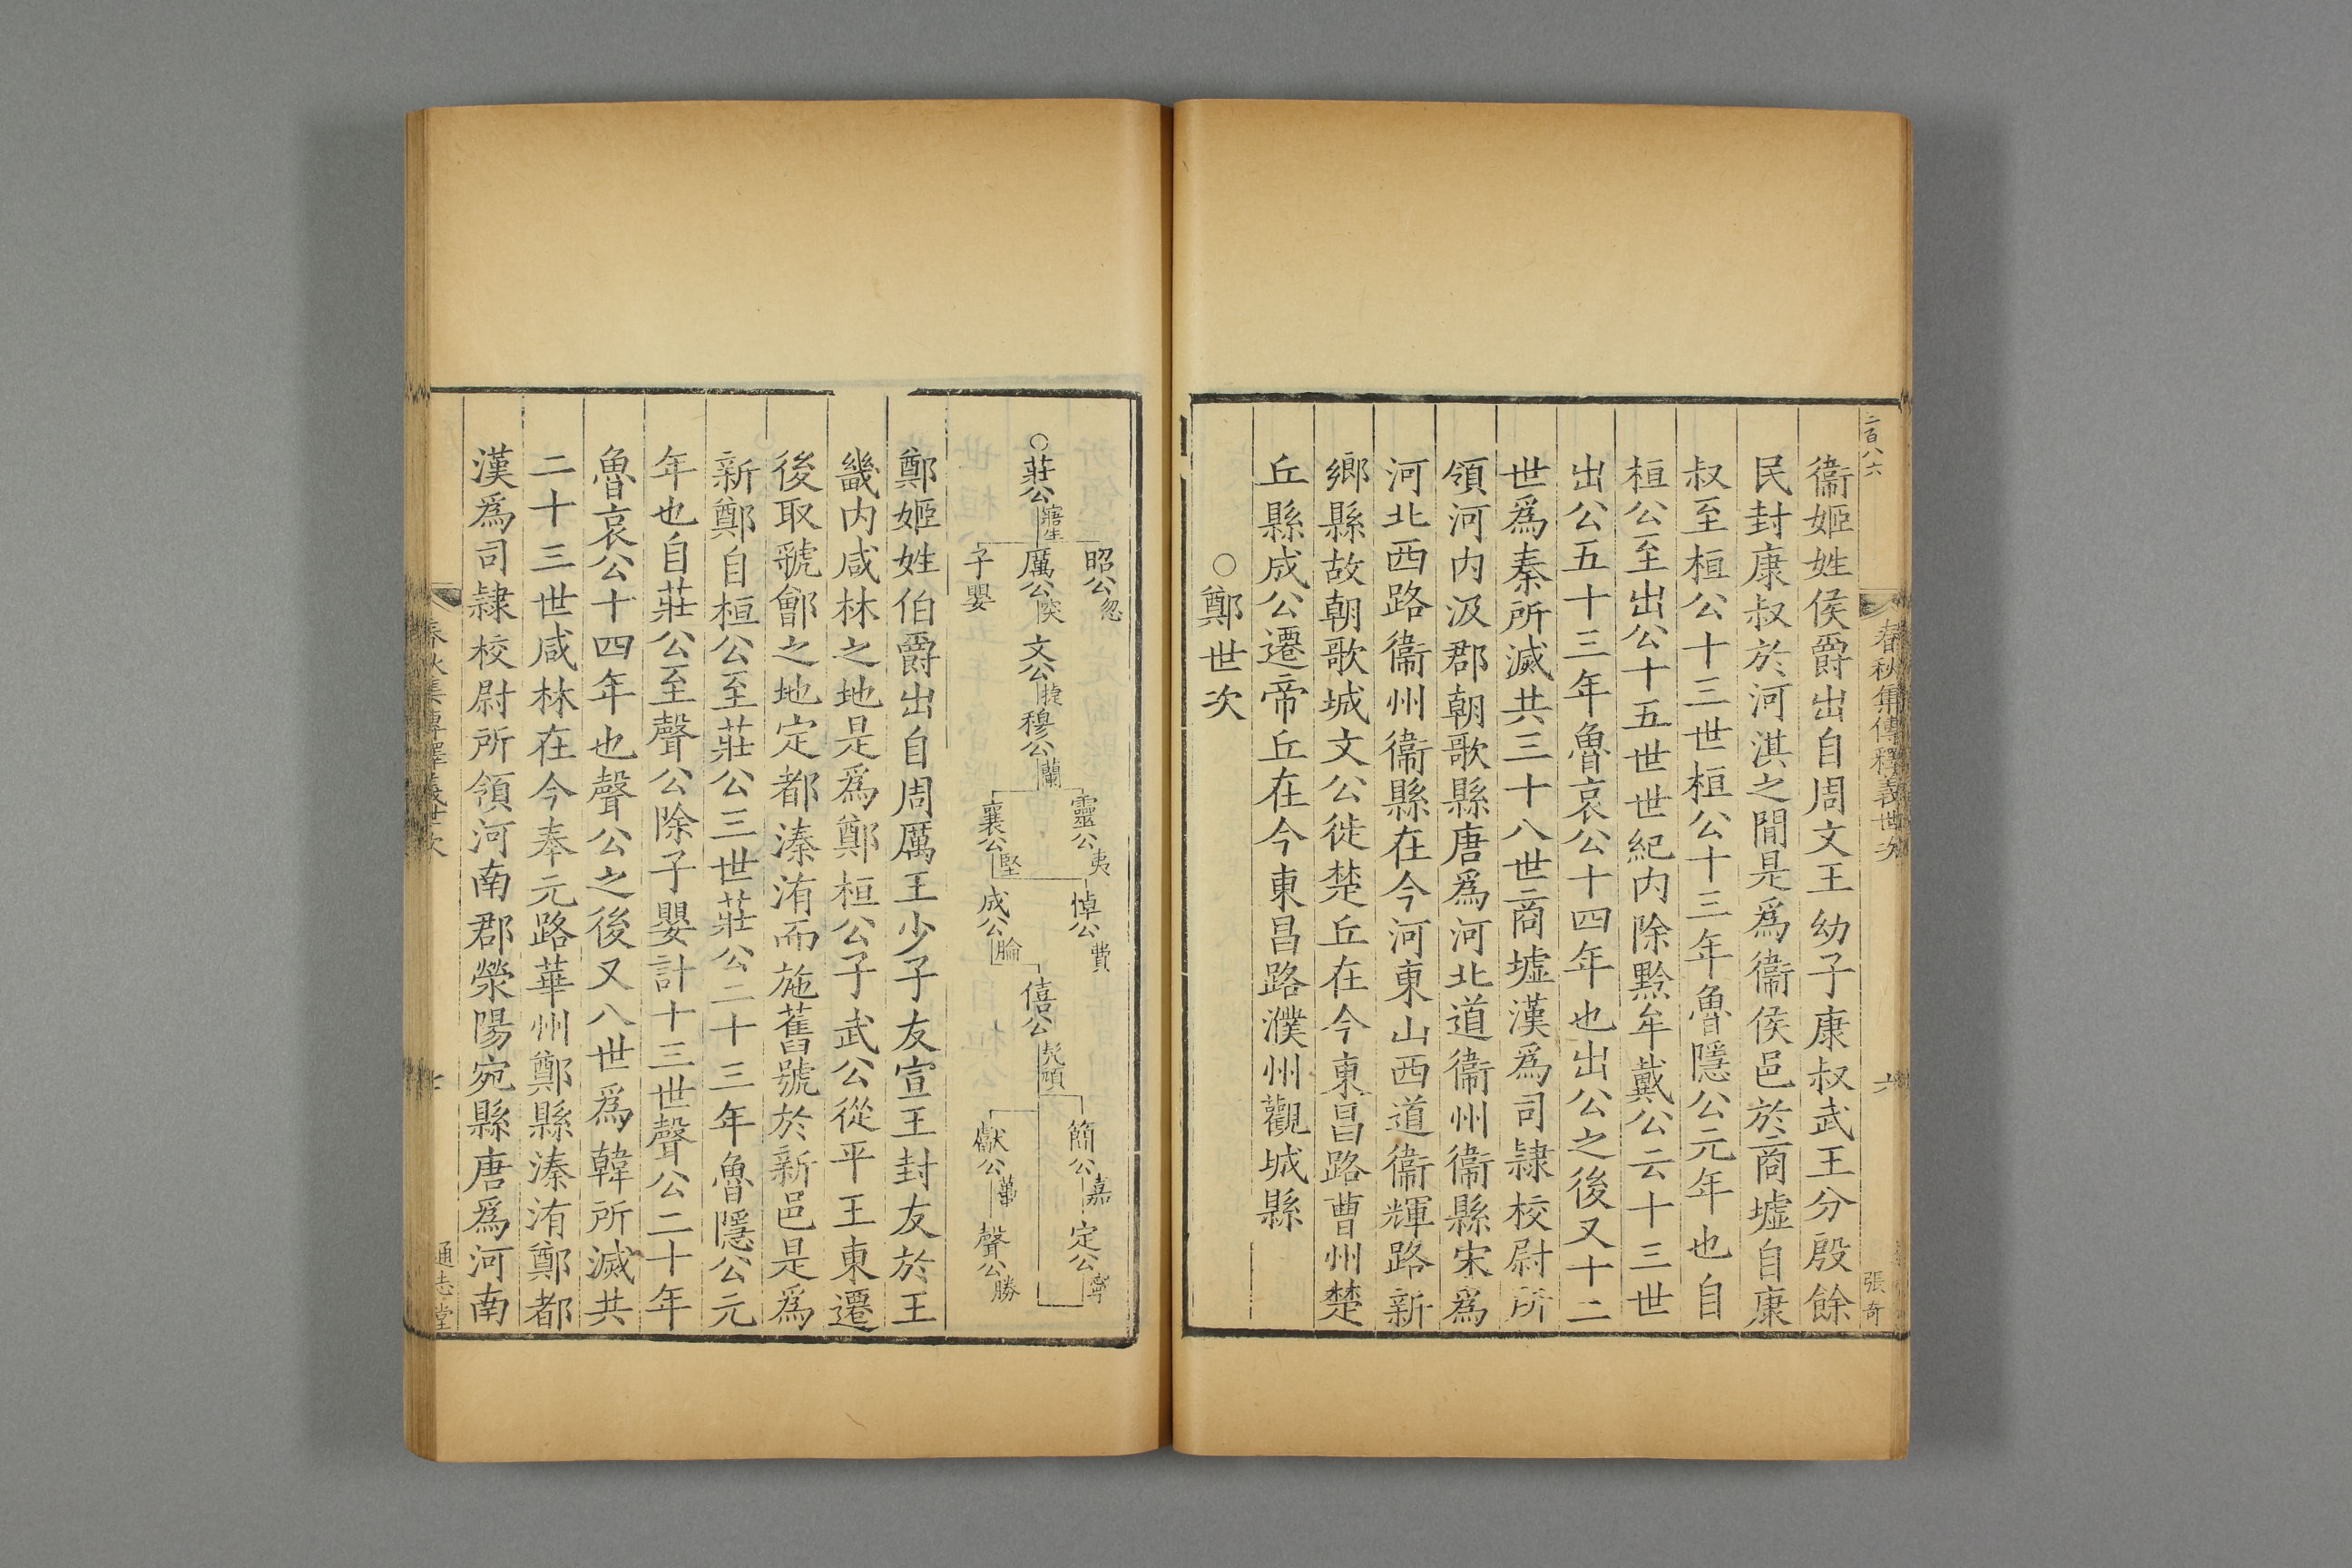 二百八六
春秋集傳釋義世次
六
張奇
衞姬姓侯爵出自周文王幼子康叔武王分殷餘
民封康叔於河淇之間是爲衞侯邑於商墟自康
叔至桓公十三世桓公十三年魯隱公元年也自
桓公至出公十五世世紀内除黔牟戴公云十三世
出公五十三年魯哀公十四年也出公之後又十二
世爲秦所滅共三十八世商墟漢爲司隷校尉所
領河内汲郡朝歌縣唐爲河北道衞州衞縣宋爲
河北西路衞州衞縣在今河東山西道衞輝路新
鄉縣故朝歌城文公徙楚丘在今東昌路曹州楚
丘縣成公遷帝丘在今東昌路濮州觀城縣
○鄭世次
昭公忽
靈公夷
悼公費
簡公嘉
定公寧
○莊公寤生
厲公突
文公捷
穆公蘭
僖公髠頑
子嬰
襄公堅
成公睔
獻公蠆
聲公勝
鄭姬姓伯爵出自周厲王少子友宣王封友於王
畿内咸林之地是爲鄭桓公子武公從平王東遷
後取虢鄶之地定都溱洧而施舊號於新邑是爲
新鄭自桓公至莊公三世莊公二十三年魯隱公元
年也自莊公至聲公除子嬰計十三世聲公二十年
魯哀公十四年也聲公之後又八世爲韓所滅共
二十三世咸林在今奉元路華州鄭縣溱洧鄭都
漢爲司隷校尉所領河南郡滎陽宛縣唐爲河南
春秋集傳釋義世次
七
通志堂